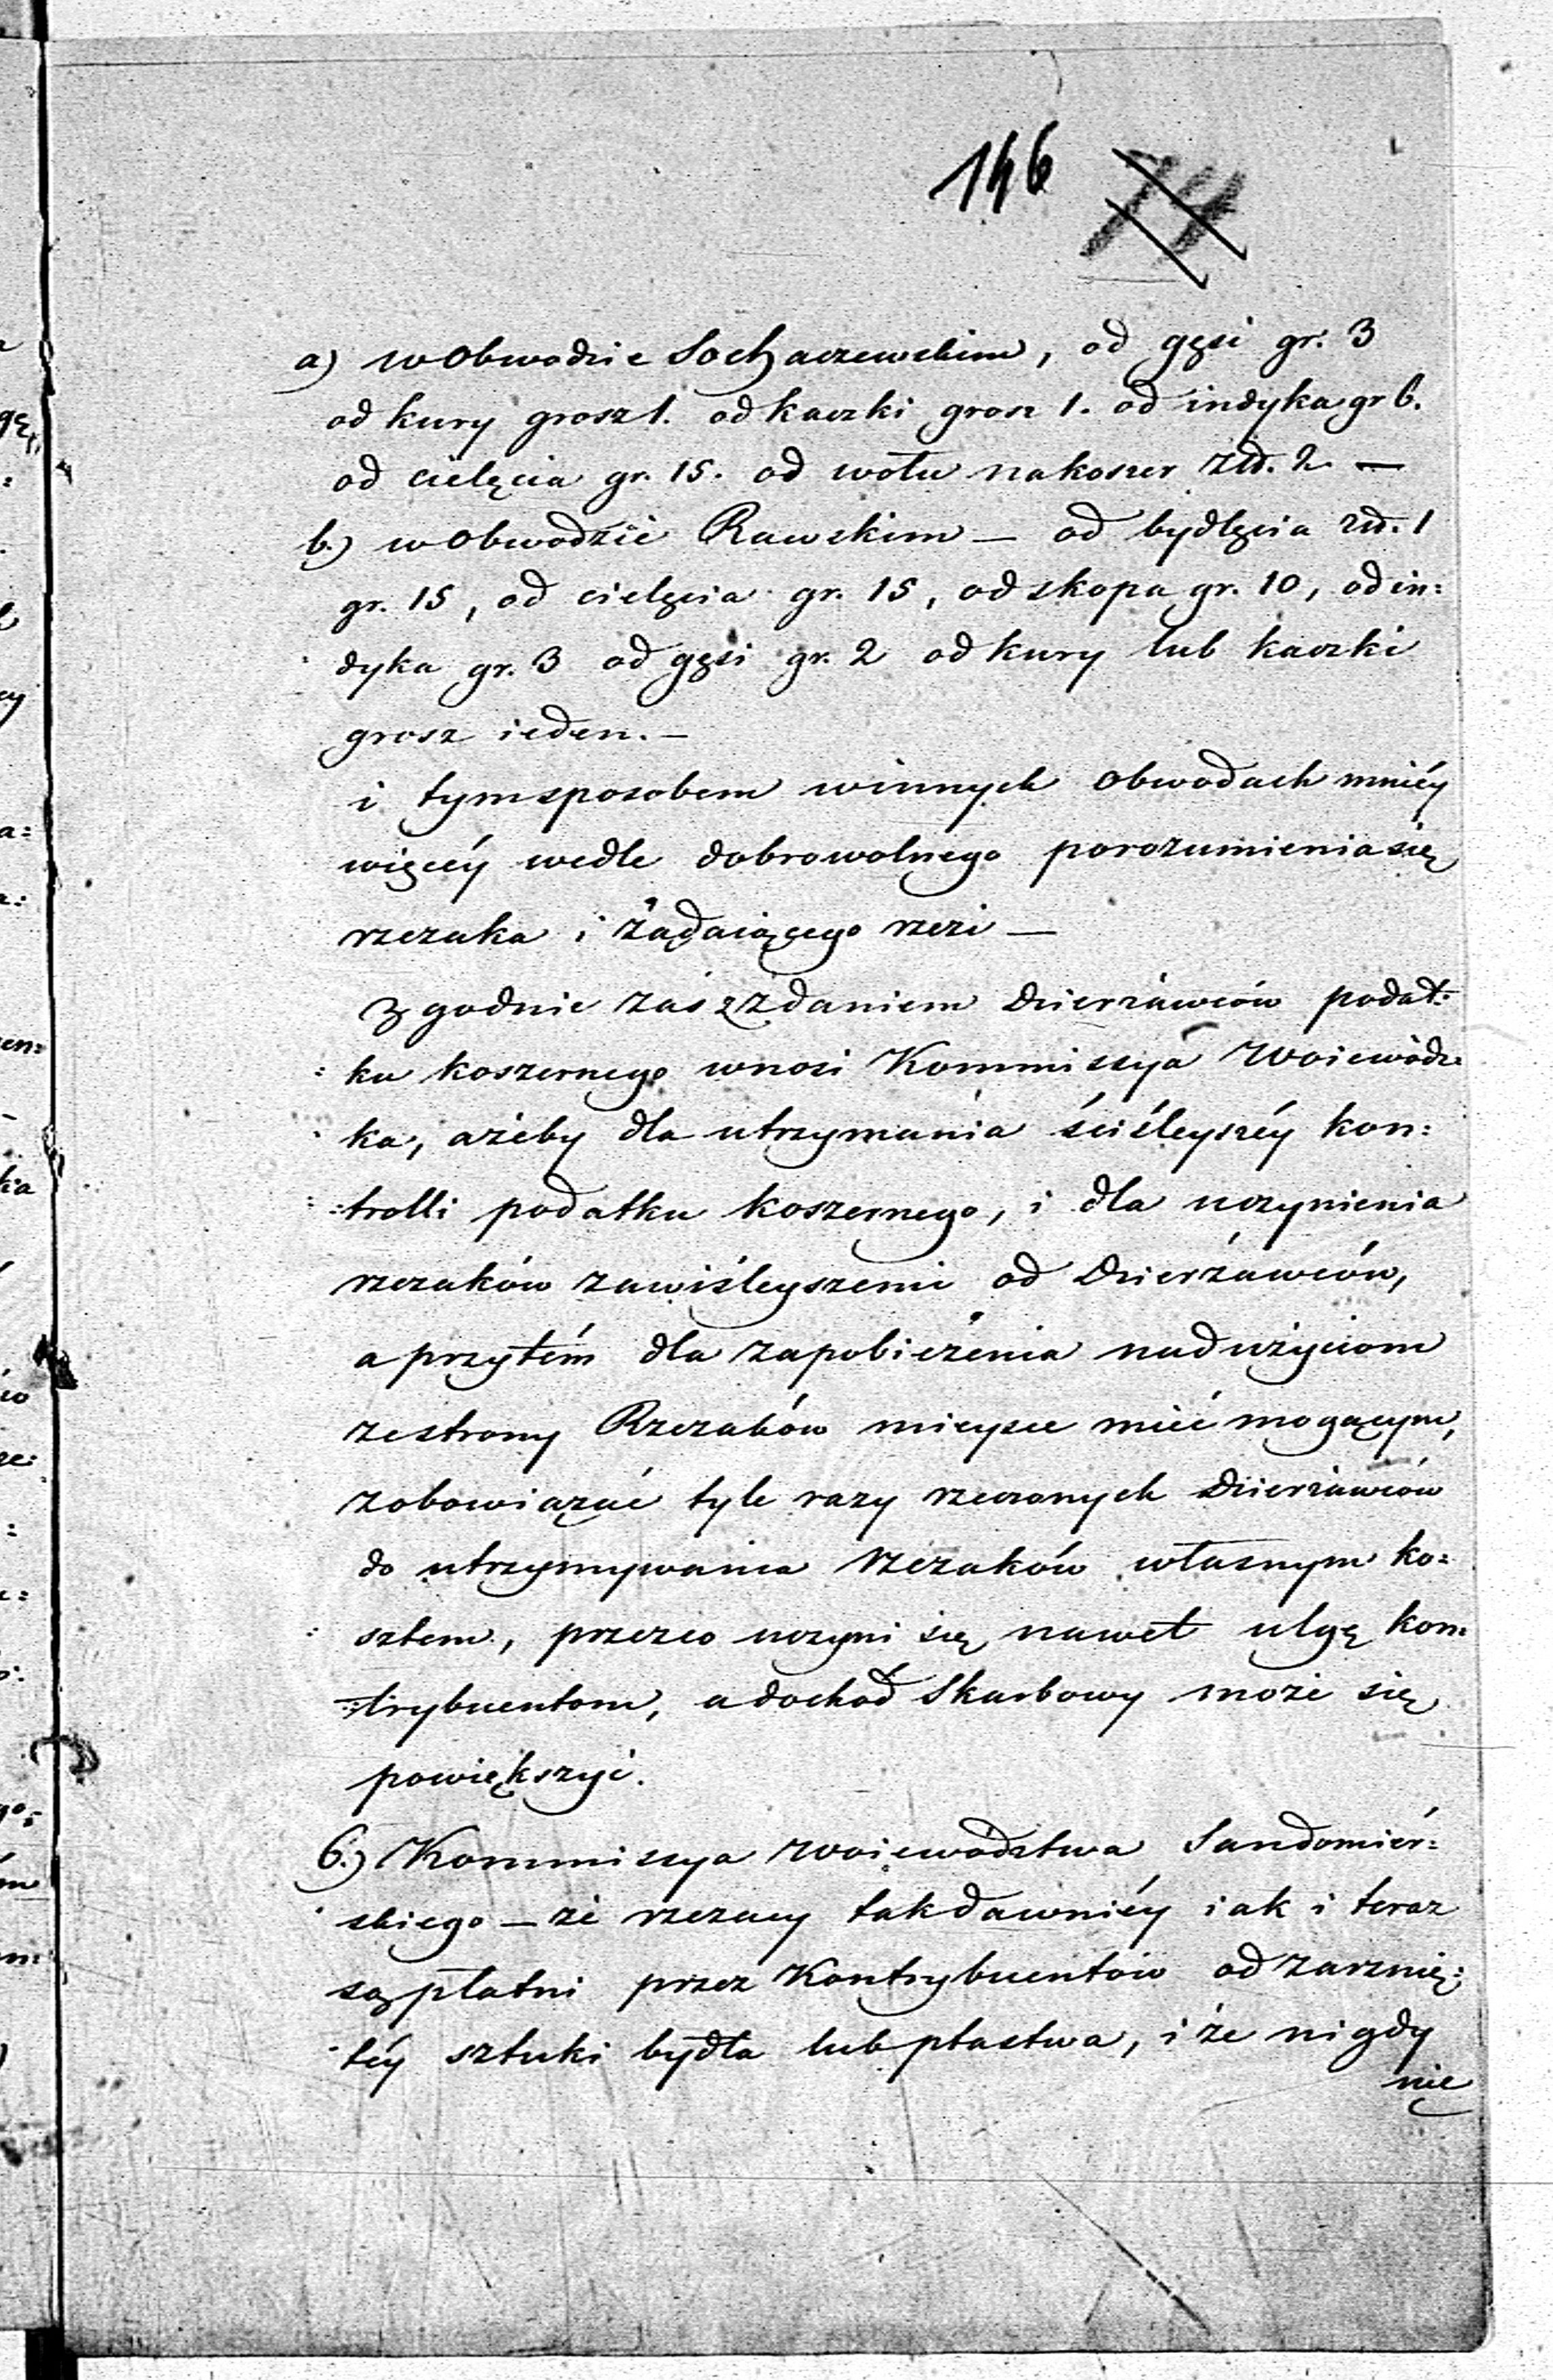 146 74
a) w Obwodzie Sochaczewskim, od gęsi gr. 3
od kury grosz 1. od kaczki grosz 1. od indyka gr 6.
od cielęcia gr. 15. od wołu na koszer Złł. 2 —
b.) w Obwodzie Rawskim — od bydlęcia złł. 1
gr. 15, od cielęcia gr. 15, od skopa gr. 10, od in:
dyka gr. 3 od gęsi gr. 2 od kury lub kaczki
grosz ieden. —
i tym sposobem w innych Obwodach mniéy
więcéy wedle dobrowolnego porozumienia się
rzezaka i żądaiącego rzezi —
Zgodnie zaś z zdaniem Dzierżawców podat:
ku koszernego wnosi Kommissya Woiewódz:
ka, ażeby dla utrzymania ściśleyszéy kon:
:trolli podatku koszernego, i dla uczynienia
rzezaków zawiśleyszemi od Dzierżawców,
a przytém dla zapobieżenia nadużyciom
ze strony Rzezaków mieysce mieć mogącym,
zobowiązać tyle razy rzeczonych Dzierżawców
do utrzymywania Rzezaków własnym ko:
sztem, przezco uczyni się nawet ulgę kon:
:trybuentom, a dochod Skarbowy może się
powiększyć.
6.) Kommissya Woiewództwa Sandomiér:
skiego — że rzezacy tak dawniéy iak i teraz
są płatni przez Kontrybuentów od zarznię:
téy sztuki bydła lub ptastwa, i że nigdy
nie